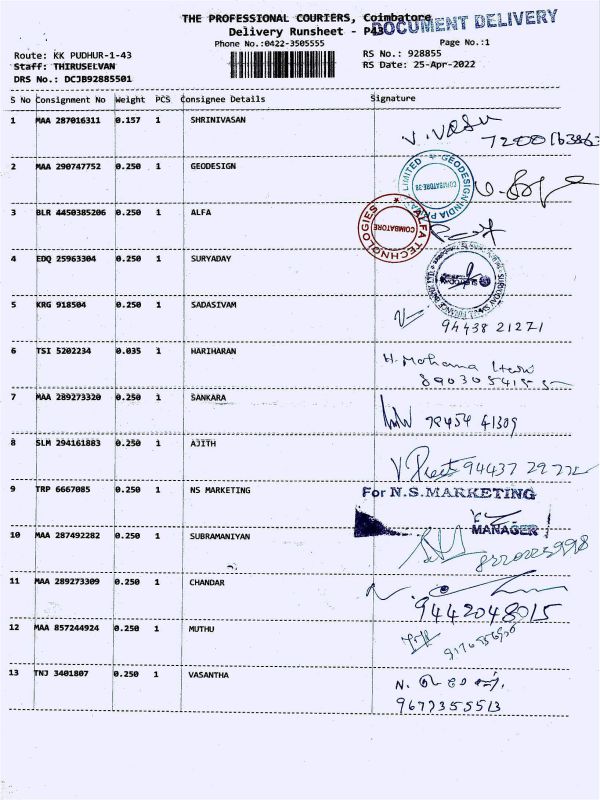 THE PROFESSIONAL COURIERS, Coimbatore
DOCUMENT DELIVERY
Delivery Runsheet - P43
Phone No.:0422-3505555
Page No.:1
Route: KK PUDHUR-1-43
RS No.: 928855
Staff: THIRUSELVAN
RS Date: 25-Apr-2022
DRS No.: DCJB92885501
S No Consignment No Weight PCS Consignee Details Signature
1 MAA 287016311 0.157 1 SHRINIVASAN
V. Vasu
2 MAA 290747752 0.250 1 GEODESIGN
GEODESIGN INDIA LIMITED
COIMBATORE-38
3 BLR 4450385206 0.250 1 ALFA
ALFA TECHNOLOGIES
COIMBATORE
4 EDQ 25963304 0.250 1 SURYADAY
5 KRG 918504 0.250 1 SADASIVAM
94438 21271
6 TSI 5202234 0.035 1 HARIHARAN
H. Mohana
7 MAA 289273320 0.250 1 SANKARA
8 SLM 294161883 0.250 1 AJITH
9 TRP 6667085 0.250 1 NS MARKETING
For N.S.MARKETING
MANAGER
10 MAA 287492282 0.250 1 SUBRAMANIYAN
11 MAA 289273309 0.250 1 CHANDAR
9442048015
12 MAA 857244924 0.250 1 MUTHU
13 TNJ 3401807 0.250 1 VASANTHA
9677355513